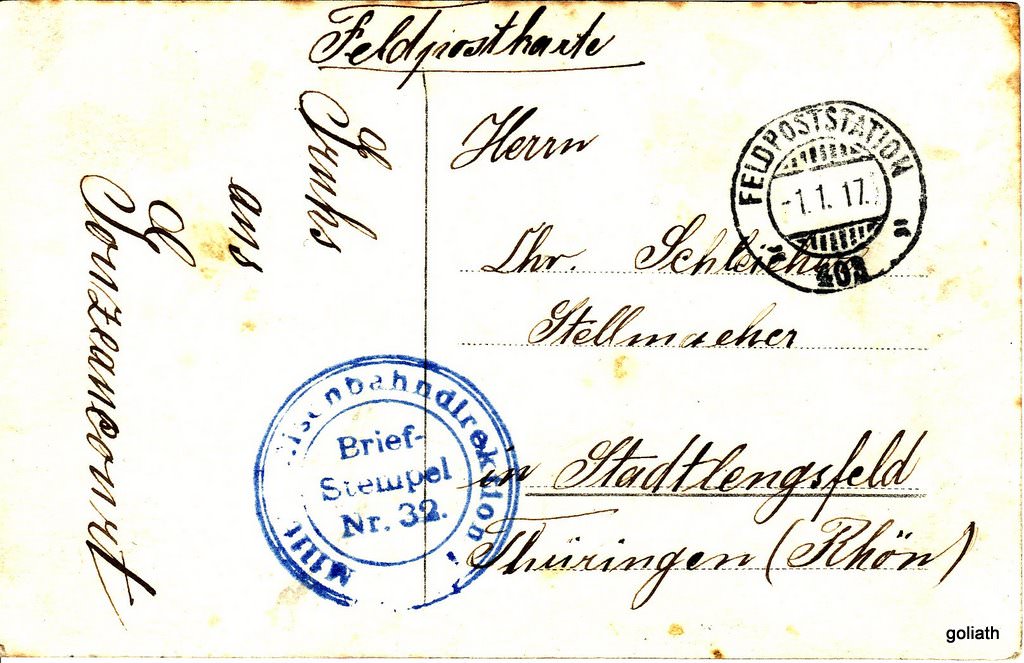 Feldpostkarte
Gruhs
aus
Herrn
Chr. Schleicher
Stellmacher
in Stadtlengsfeld
Thüringen (Rhön)
FELDPOSTSTATION
-1.1.17.
Milit Eisenbahndirektion
Brief-
Stempel
Nr. 32.
goliath